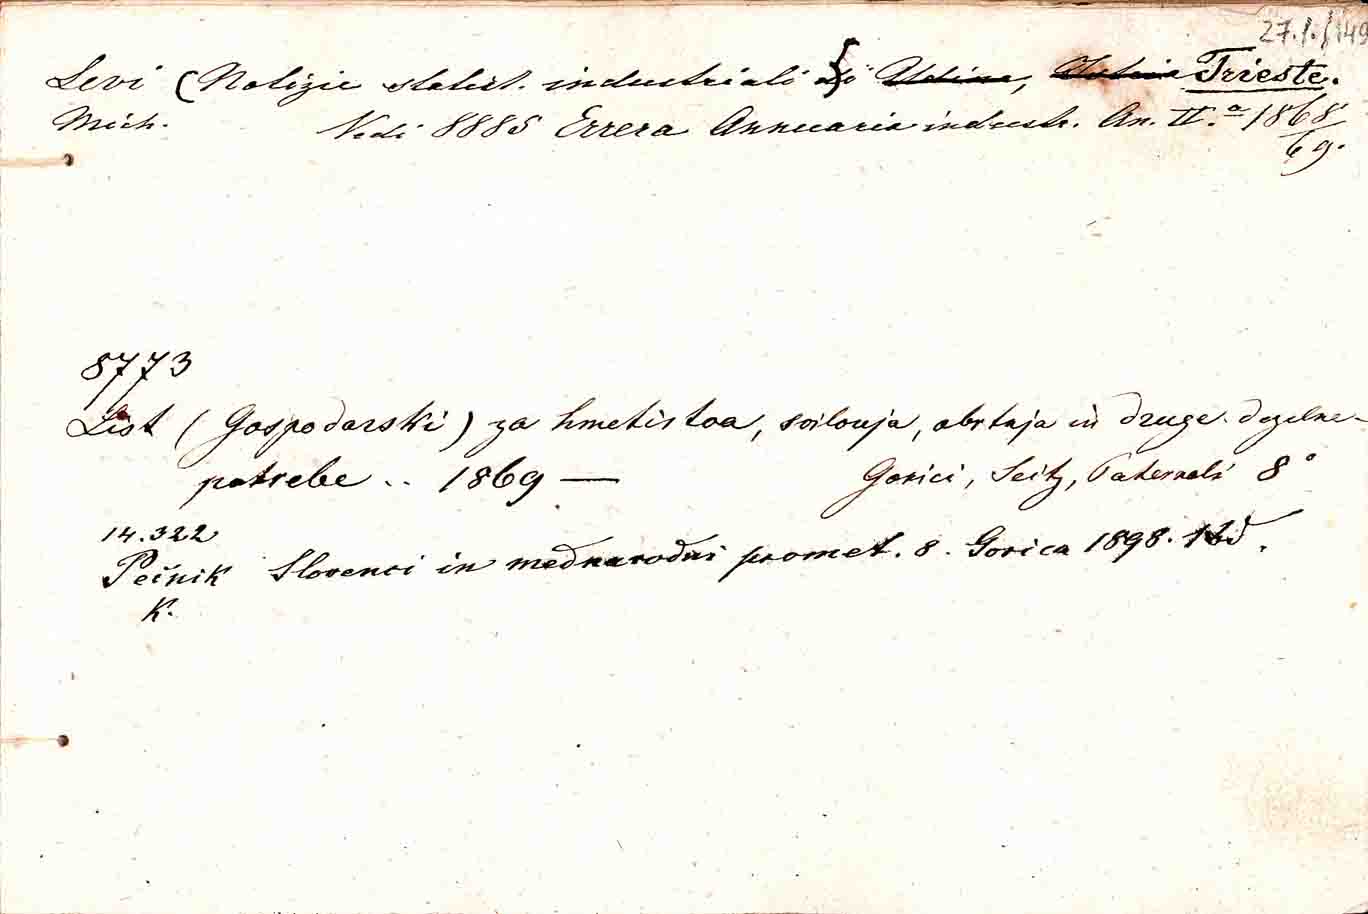 27.1./149
Levi (Notizie statist. industriali di Udine, Trieste.
Mich. Vedi 8885 Errera Annuario industr. An. II.a 1868/69.
8773
List (Gospodarski) za kmetistva, svilovja, obrtnja in druge dezelne
potrebe .. 1869 — Gorici, Seitz, Paternoli 8°
14.322
Pečnik Slovenci in mednarodni promet. 8. Gorica 1898.
K.